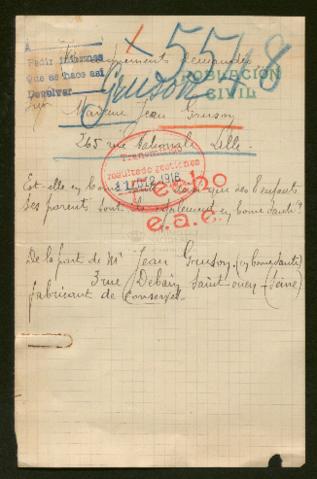 A
Pedir informes
Que se haos así
Devolver
x 55418
POBLACIÓN
CIVIL
Renseignements demandés
sur
Gruson
Madame Jean Gruson
265 rue Nationale Lille.
Transmitido
resultado gestiones
31 DIC 1916
Hecho
e.a.c.
Est-elle en bonne santé ainsi que ses 3 enfants
Ses parents sont-ils également en bonne santé?
De la part de Mr Jean Gruson. (en bonne santé)
3 rue Debain Saint ouen (Seine)
fabricant de Conserves.